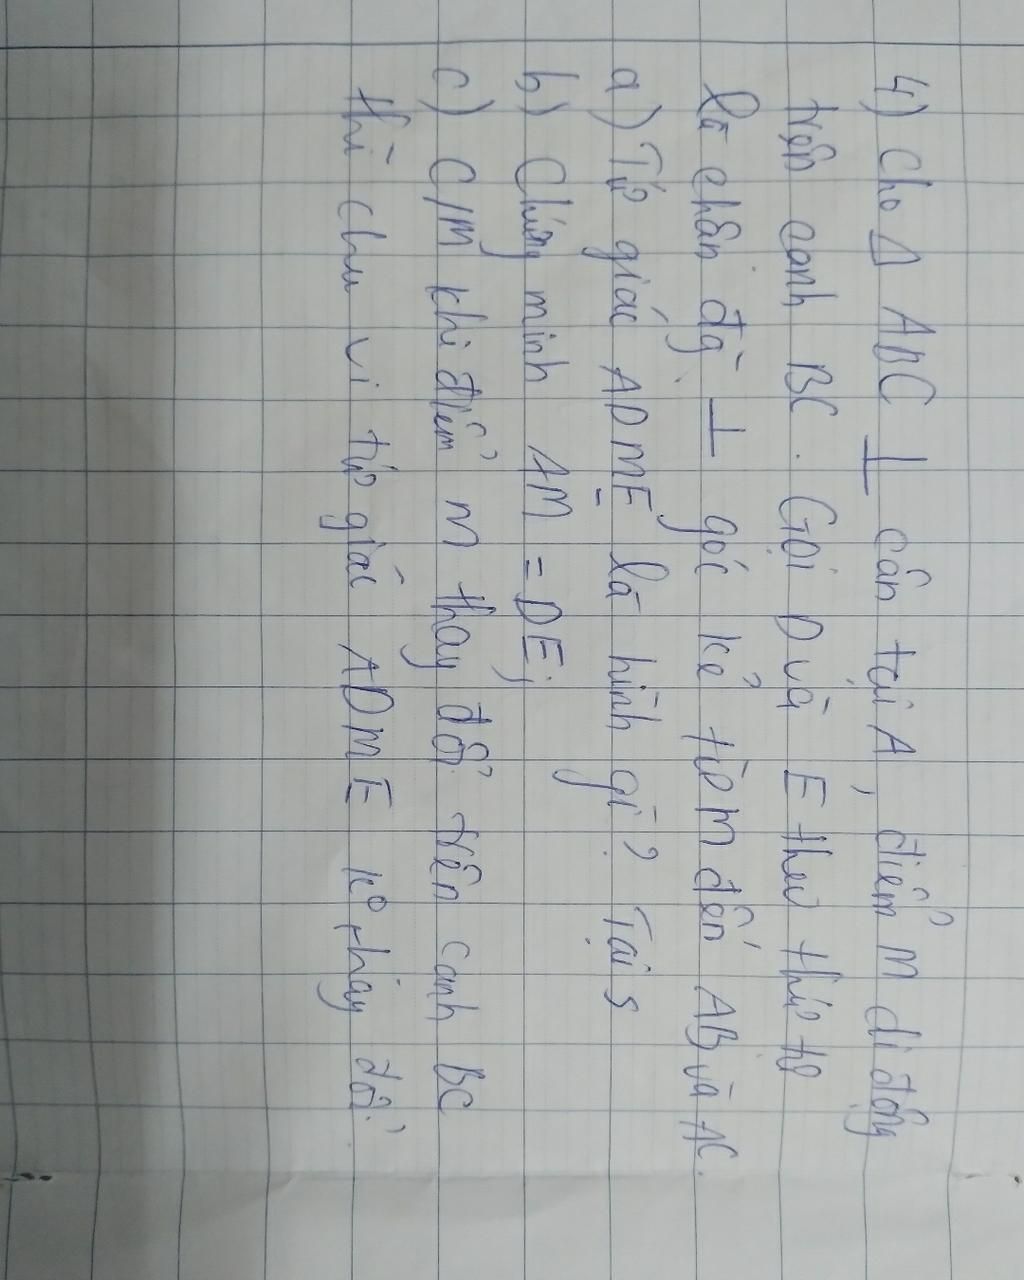 4) Cho Δ ABC ⊥ cân tại A, điểm M di động
trên cạnh BC. Gọi D và E theo thứ tự
là chân đg ⊥ góc kẻ từ M đến AB và AC.
a) Tứ giác ADME là hình gì? Tại s
b) Chứng minh AM = DE;
c) C/m khi điểm M thay đổi trên cạnh BC
thì chu vi tứ giác ADME ko thay đổi.